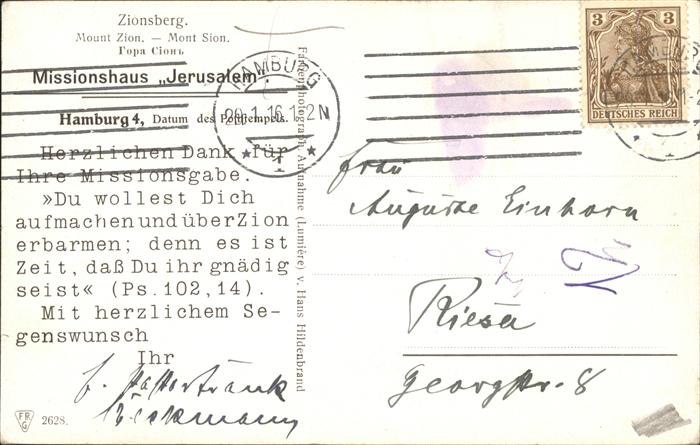 Zionsberg.
Mount Zion. — Mont Sion.
Гора Сіонъ
Missionshaus „Jerusalem“
Hamburg 4, Datum des Poststempels.
Herzlichen Dank für
Ihre Missionsgabe.
»Du wollest Dich
aufmachen und über Zion
erbarmen; denn es ist
Zeit, daß Du ihr gnädig
seist« (Ps. 102, 14).
Mit herzlichem Se-
genswunsch
Ihr
FR
G
2628.
Farbenphotograph. Aufnahme (Lumière) v. Hans Hildenbrand
HAMBURG
20.1.16.1-2N
* 1 *
3 3
DEUTSCHES REICH
Frau
Auguste Einhorn
Riesa
Georgstr. 8